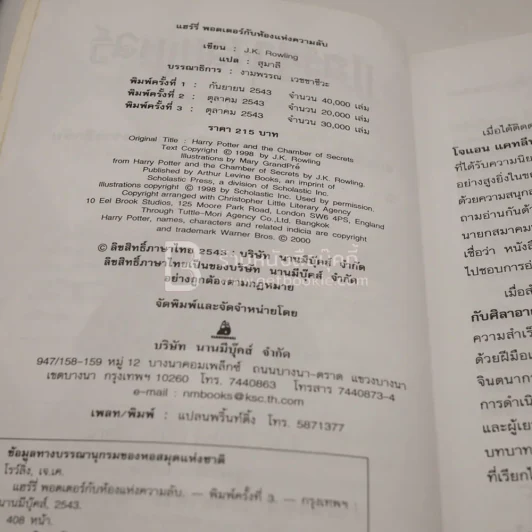 แฮร์รี่ พอตเตอร์กับห้องแห่งความลับ
เขียน : J.K. Rowling
แปล : สุมาลี
บรรณาธิการ : งามพรรณ เวชชาชีวะ
พิมพ์ครั้งที่ 1 : กันยายน 2543 จำนวน 40,000 เล่ม
พิมพ์ครั้งที่ 2 : ตุลาคม 2543 จำนวน 20,000 เล่ม
พิมพ์ครั้งที่ 3 : ตุลาคม 2543 จำนวน 30,000 เล่ม
ราคา 215 บาท
Original Title : Harry Potter and the Chamber of Secrets
Text Copyright © 1998 by J.K. Rowling
Illustrations by Mary GrandPré
from Harry Potter and the Chamber of Secrets by J.K. Rowling.
Published by Arthur Levine Books, an imprint of
Scholastic Press, a division of Scholastic Inc.
Illustrations copyright © 1998 by Scholastic Inc. Used by permission.
Copyright arranged with Christopher Little Literary Agency
10 Eel Brook Studios, 125 Moore Park Road, London SW6 4PS, England
Through Tuttle-Mori Agency Co.,Ltd. Bangkok
Harry Potter, names, characters and related indicia are copyright
and trademark Warner Bros. © 2000
© ลิขสิทธิ์ภาษาไทย 2543 : บริษัท นานมีบุ๊คส์ จำกัด
ลิขสิทธิ์ภาษาไทยเป็นของบริษัท นานมีบุ๊คส์ จำกัด
อย่างถูกต้องตามกฎหมาย
จัดพิมพ์และจัดจำหน่ายโดย
บริษัท นานมีบุ๊คส์ จำกัด
947/158-159 หมู่ 12 บางนาคอมเพล็กซ์ ถนนบางนา-ตราด แขวงบางนา
เขตบางนา กรุงเทพฯ 10260 โทร. 7440863 โทรสาร 7440873-4
e-mail : nmbooks@ksc.th.com
เพลท/พิมพ์ : แปลนพริ้นท์ติ้ง โทร. 5871377
ข้อมูลทางบรรณานุกรมของหอสมุดแห่งชาติ
โรว์ลิ่ง, เจ.เค.
แฮร์รี่ พอตเตอร์กับห้องแห่งความลับ. — พิมพ์ครั้งที่ 3. — กรุงเทพฯ :
นานมีบุ๊คส์, 2543.
408 หน้า.
เมื่อได้ติดต
โจแอน แคทลีน
ที่ได้รับความนิย
อย่างสูงยิ่งในข
ด้วยความสนุก
ถามอ่านกันด้ว
นายกสมาคม
เชื่อว่า หนังสื
ไปชอบการอ่า
เมื่อส
กับศิลาอา
ความสำเร็
ด้วยฝีมือแ
จินตนากา
การดำเนิ
และผู้เย
บทบาท
ที่เรียกไ